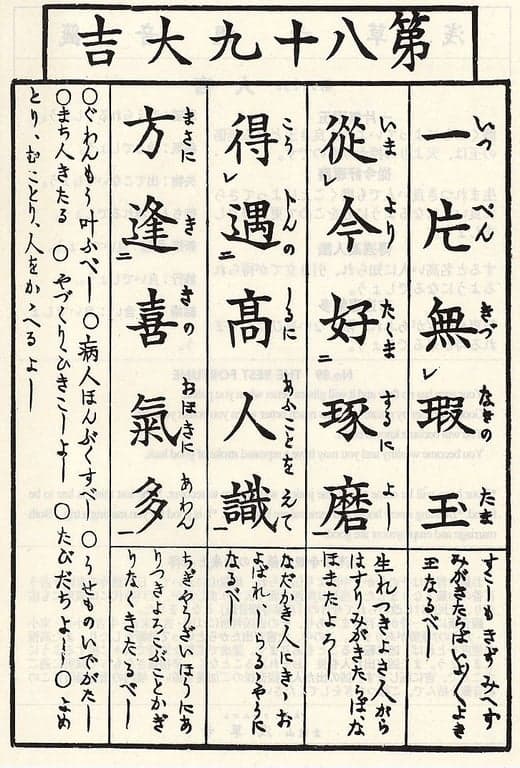 第八十九大吉
一片無瑕玉
いつ ぺん きず なきの たま
すこしもきずみへず
みがきたらばいよ〱よき
玉なるべし
從今好琢磨
いま より たま するに よし
生れつきよきさへ人から
はすりみがきたらばな
ほまたよろし
得遇高人識
こう じんの しるに あふことを えて
なだかき人にきゝお
よばれ
なるべし
方逢喜氣多
まさに き きの おほきに あわん
ちぎやうざいほうにあ
りつきよろこぶことかぎ
りなくきたるべし
○ぐわんもう叶ふべし ○病人ほんぶくすべし ○うせものいでがたし
○まち人きたる ○やづくり、ひきこしよし ○たびだちよし ○よめ
とり、むことり、人をかゝへるよし